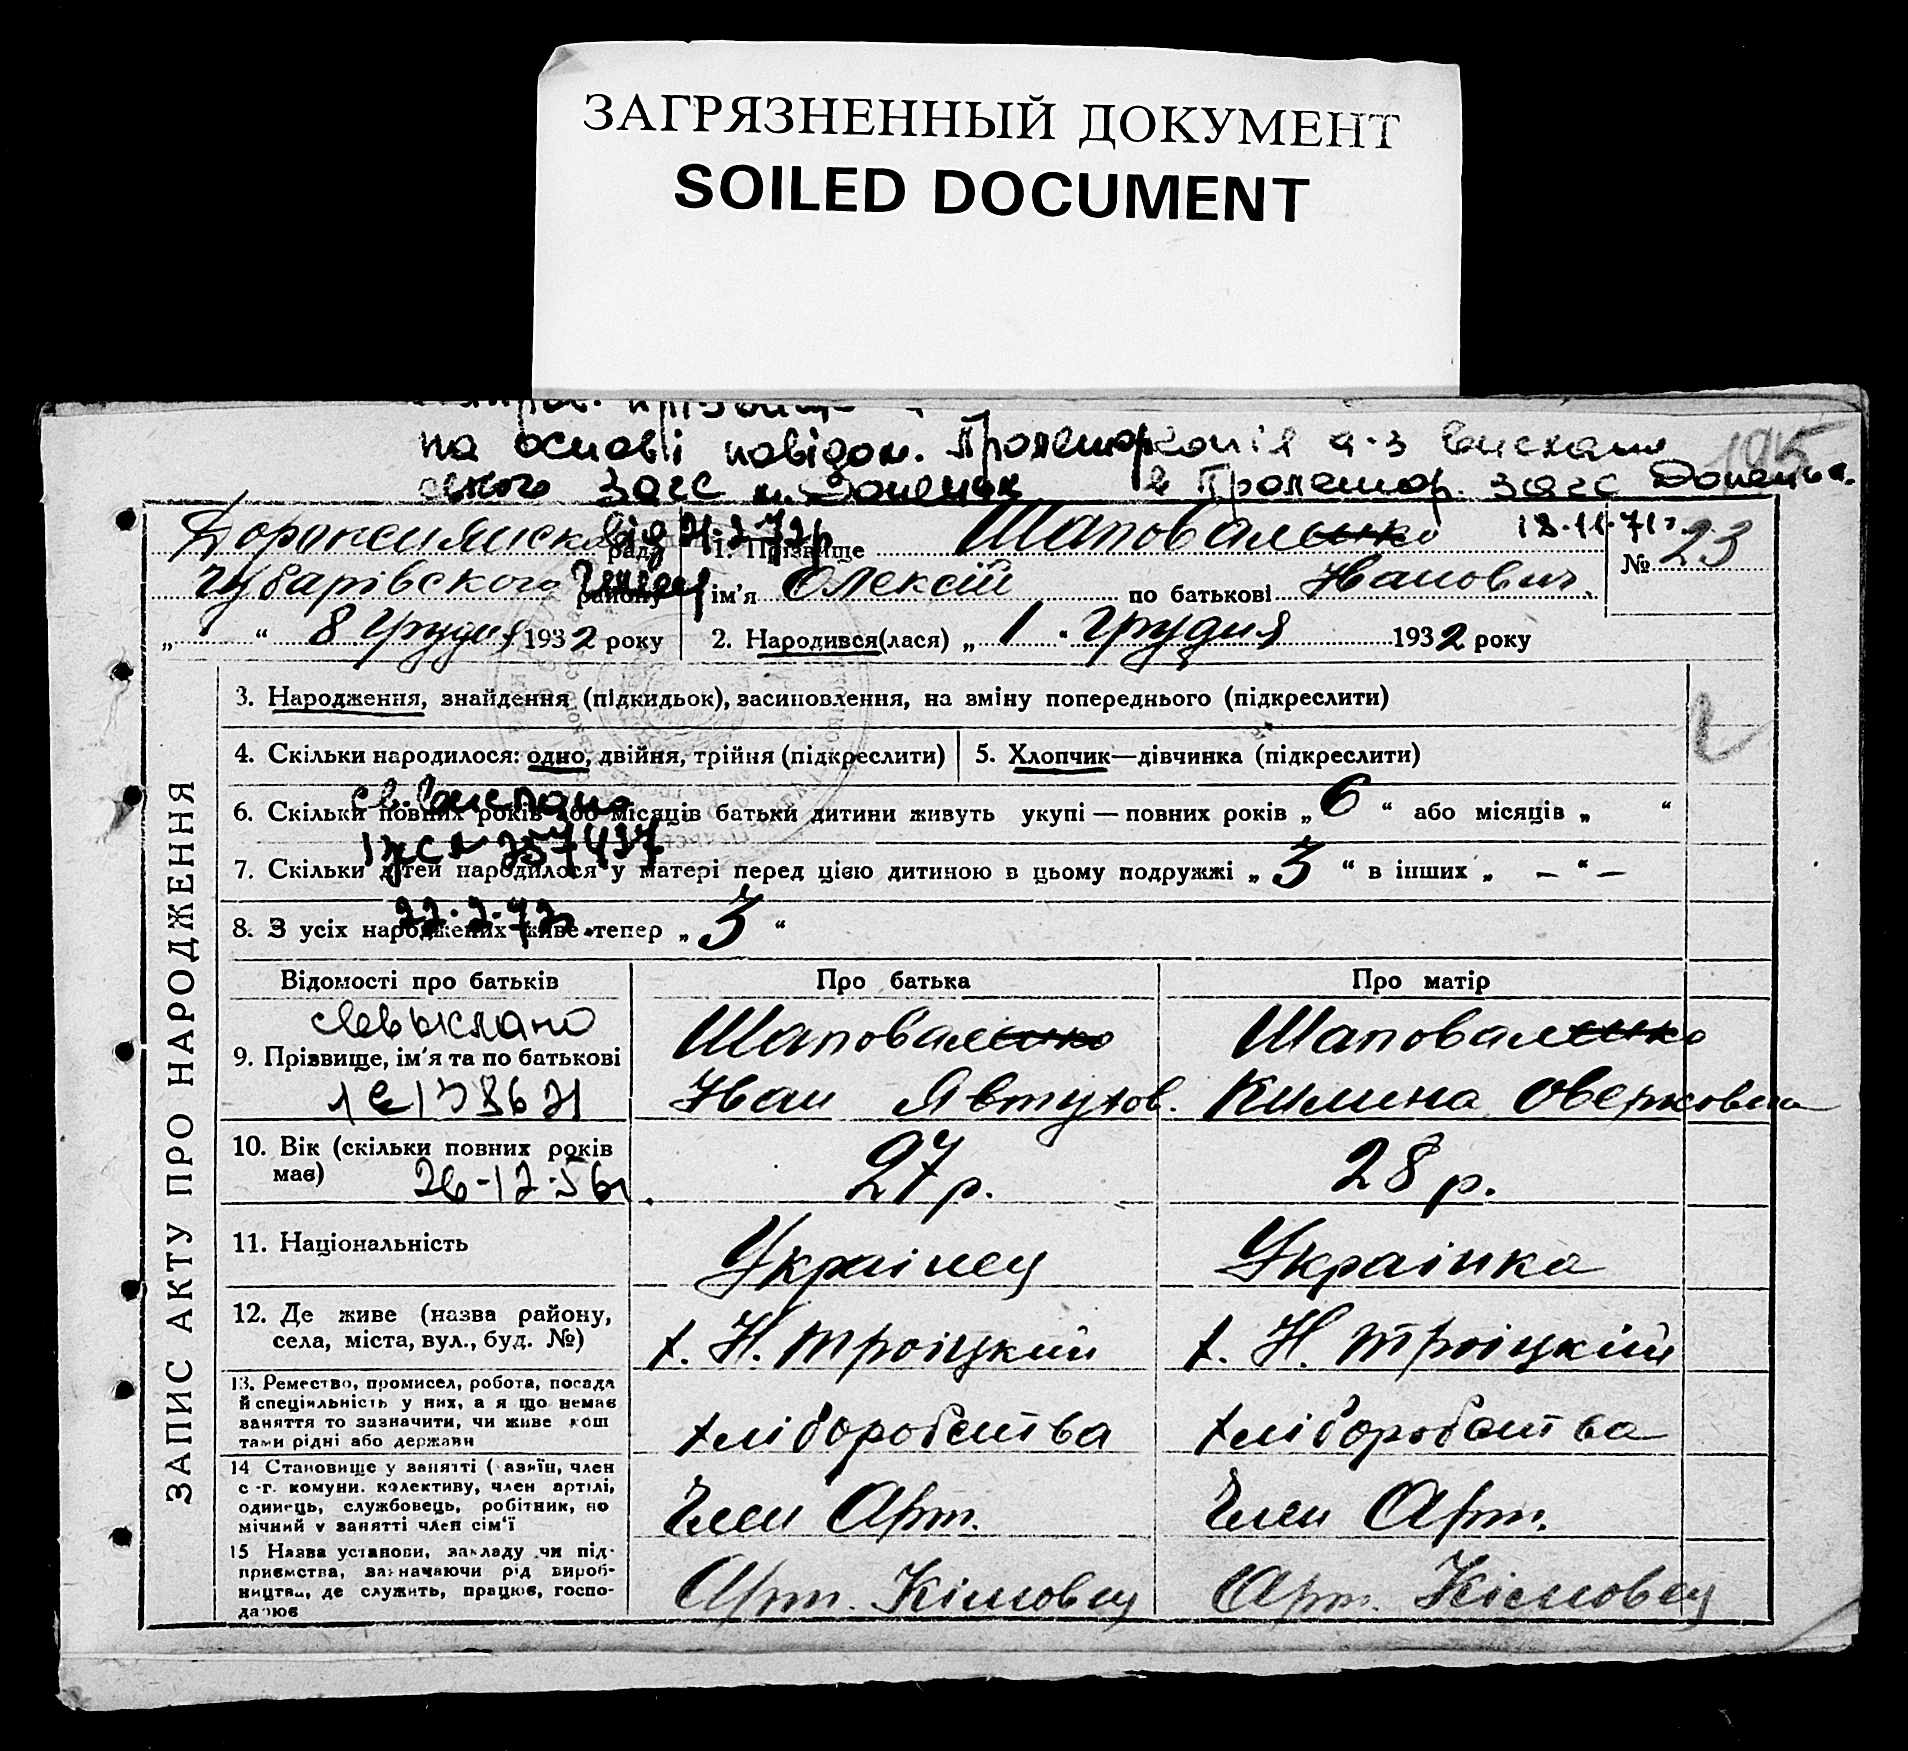 ЗАГРЯЗНЕННЫЙ ДОКУМЕНТ
SOILED DOCUMENT
на основі повідом. Пролетар копія а-з вислано
ського загс м. Донецьк в Пролетар. загс Донецьк.
від 21.2.72р 18.11.71г.
195
рада 1. Прізвище Шаповаленко № 23
Чубарівського району ім’я Олексій по батькові Іванович
„ “ 8 Грудня 1932 року 2. Народився(лася) „ 1 . Грудня 1932 року
ЗАПИС АКТУ ПРО НАРОДЖЕННЯ
3. Народження, знайдення (підкидьок), засиновлення, на зміну попереднього (підкреслити)
4. Скільки народилося: одно, двійня, трійня (підкреслити) 5. Хлопчик—дівчинка (підкреслити)
св. вислано
6. Скільки повних років або місяців батьки дитини живуть укупі — повних років „ 6 “ або місяців „ “
7. Скільки дітей народилося у матері перед цією дитиною в цьому подружжі „ 3 “ в інших „ — “ —
22.2.72
8. З усіх народжених живе тепер „ 3 “
Відомості про батьків Про батька Про матір
9. Прізвище, ім’я та по батькові Шаповаленко Шаповаленко
Іван Явтухов. Килина Оверковна
10. Вік (скільки повних років має) 27 р. 28 р.
26-12-56г.
11. Національність Украінец Украінка
12. Де живе (назва району, х. Н. Троіцкий х. Н. Троіцкій
села, міста, вул., буд. №)
13. Ремество, промисел, робота, посада
й спеціяльність у них, а я що немає хліборобства хліборобства
заняття то зазначити, чи живе кош
тами рідні або держави
14 Становище у занятті ( азяїн, член
с -г. комуни. колективу, член артілі, Член Арт. Член Арт.
одинець, службовець, робітник, по
мічний у занятті член сім’ї
15 Назва установи, закладу чи під-
приємства, зазначаючи рід вироб- Арт. Кімовец Арт. Кімовец
ництва, де служить, працює, госпо-
дарює